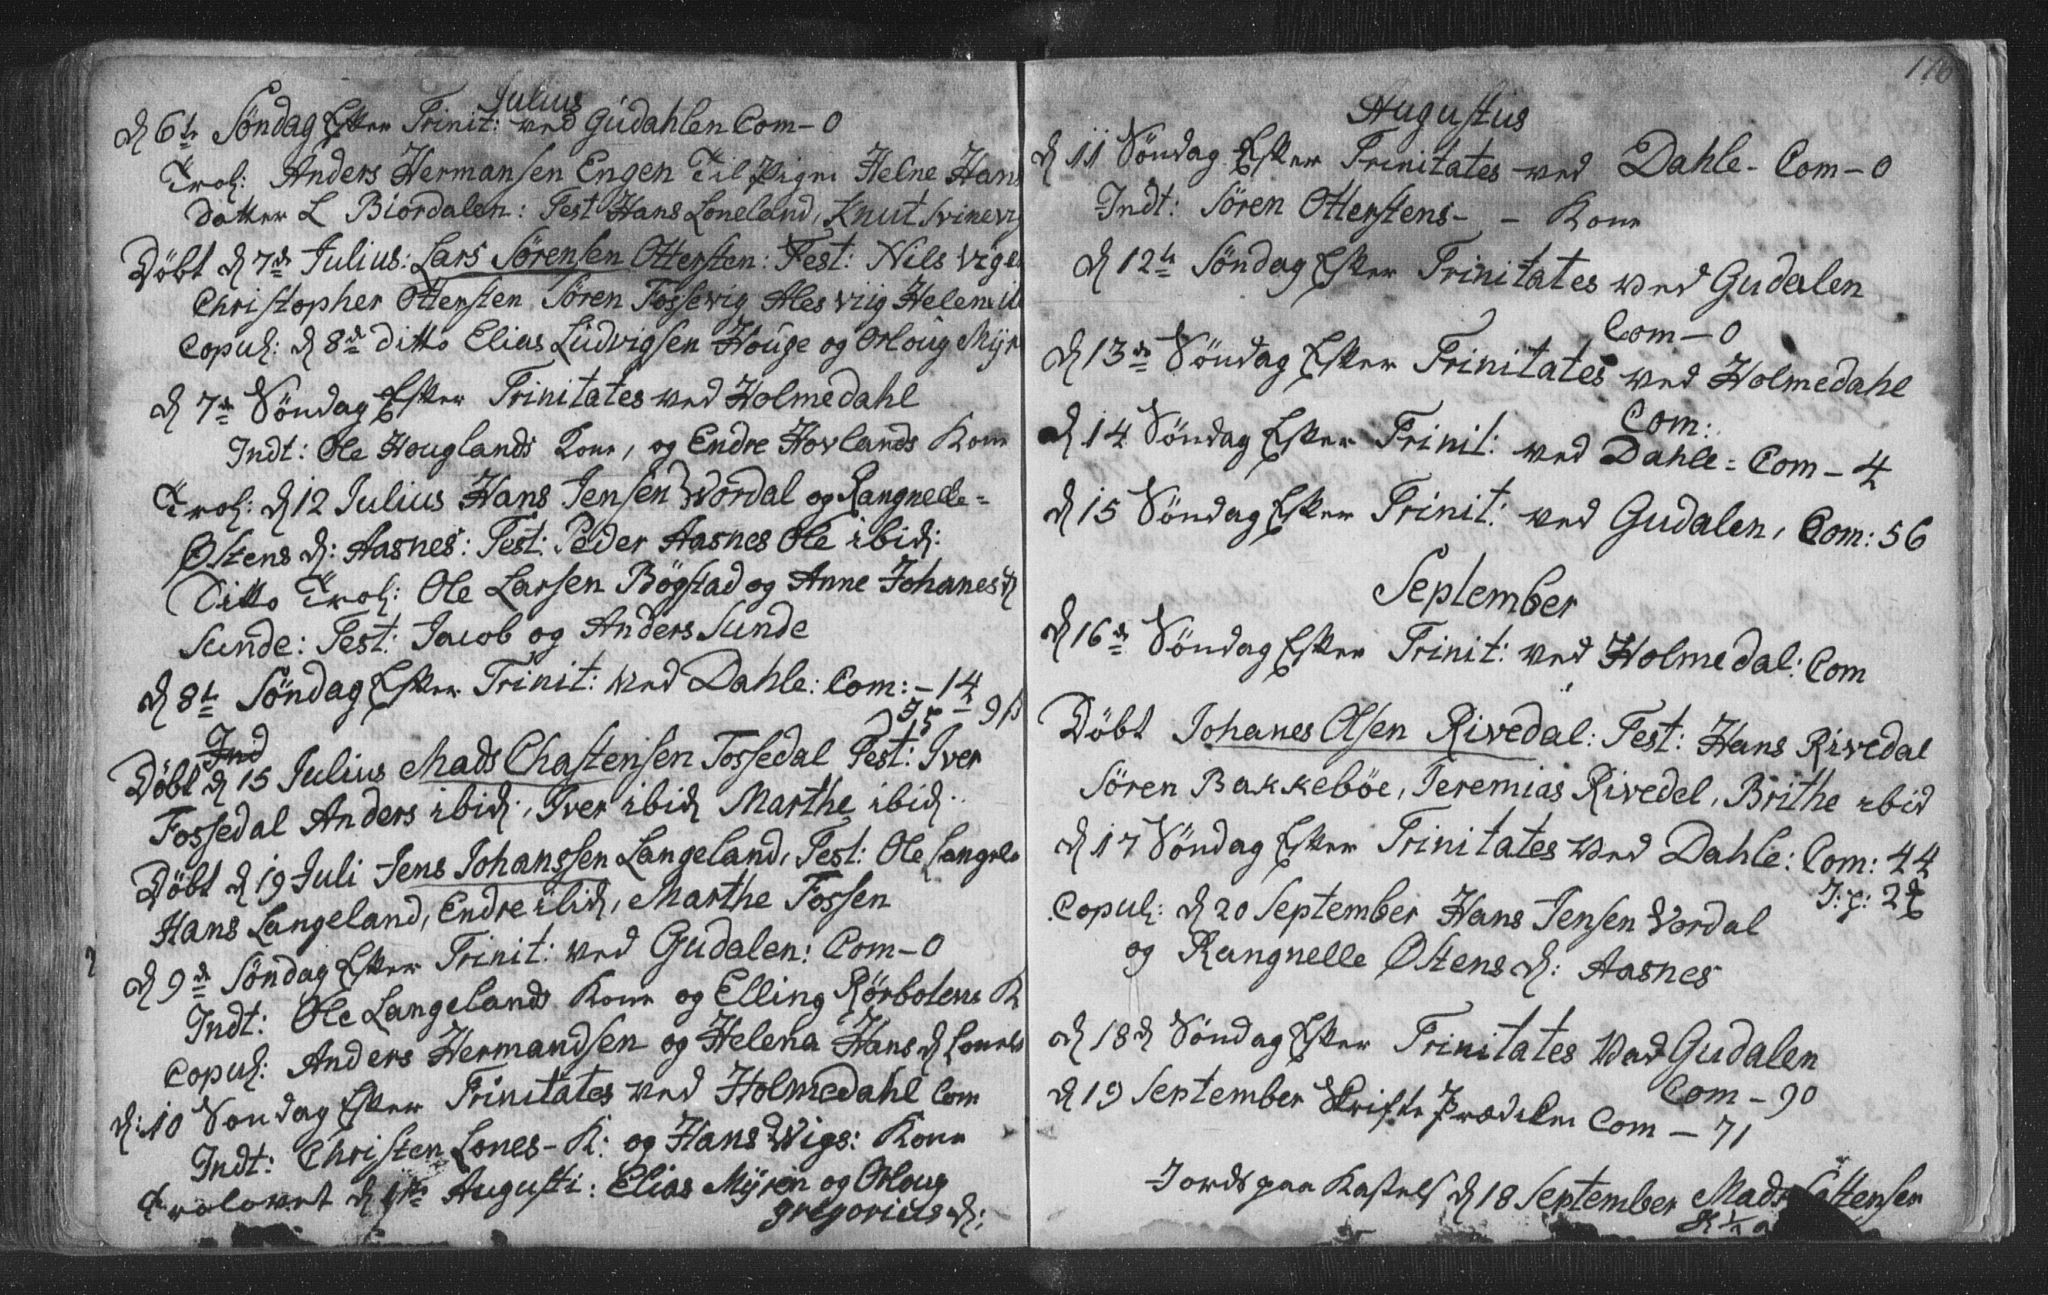 Julius
d 6te Søndag Efter Trinit: ved Gudahlen Com – 0
Trol: Anders Hermansen Engen Til Pigen Helne Hans
Datter L Biordalen: Test Hans Loneland, Knut Svinevig
Døbt d 7de Julius: Lars Sørensen Ottersten: Test: Nils Vigen
Christopher Ottersten Søren Fossevig Ales Viig Helene
Copul: d 8de Ditto Elias Ludvigsen Houge og Orloug Myr
d 7de Søndag Efter Trinitates ved Holmedahl
Indt: Ole Houglands Kone, og Endre Hovlands Kone
Trol: d 12 Julius Hans Jensen Vordal og Rangnelle=
Østens d: Aasnes: Test: Peder Aasnes Ole ibid:
Ditto Trol: Ole Larsen Bøgstad og Anne Johanes d
Sunde: Test: Jacob og Anders Sunde
d 8te Søndag Efter Trinit: ved Dahle: Com: – 14
Ind
Døbt d 15 Julius Mads Chastensen Fossedal Test: Iver
Fossedal Anders ibid:, Iver ibid Marthe ibid:
Døbt d 19 Juli Jens Johanssen Langeland, Test: Ole Langela
Hans Langeland, Endre ibid, Marthe Fossen
d 9de Søndag Efter Trinit: ved Gudalen: Com – 0
Indt: Ole Langelands Kone og Elling Rørbotens K
Copul: Anders Hermandsen og Helena Hans d Lonela
d: 10 Søndag Efter Trinitates ved Holmedahl Com
Indt: Christen Lones – K: og Hans Wigs: Kone
Trolovet d 1te Augusti: Elias Myren og Orloug
gregorius d:
176
Augustus
d 11 Søndag Efter Trinitates ved Dahle – Com – 0
Indt: Søren Otterstens – – Kone
d 12te Søndag Efter Trinitates ved Gudalen
Com – 0
d 13de Søndag Efter Trinitates ved Holmedahl
Com:
d 14 Søndag Efter Trinit: ved Dahle = Com – 4
d 15 Søndag Efter Trinit: ved Gudalen, Com: 56
September
d 16de Søndag Efter Trinit: ved Holmedal: Com
Døbt Johanes Olsen Rivedal: Test: Hans Rivedal
Søren Bakkebøe, Jeremias Rivedel, Brithe ibid
d 17 Søndag Efter Trinitates ved Dahle: Com: 44
Copul: d 20 September Hans Jensen Vordal
og Rangnelle Østens d: Aasnes
d 18d Søndag Efter Trinitates ved Gudalen
Com – 90
d 19 September Skrifte Prædiken Com – 71
Jords paa Kastels d 18 September Mads